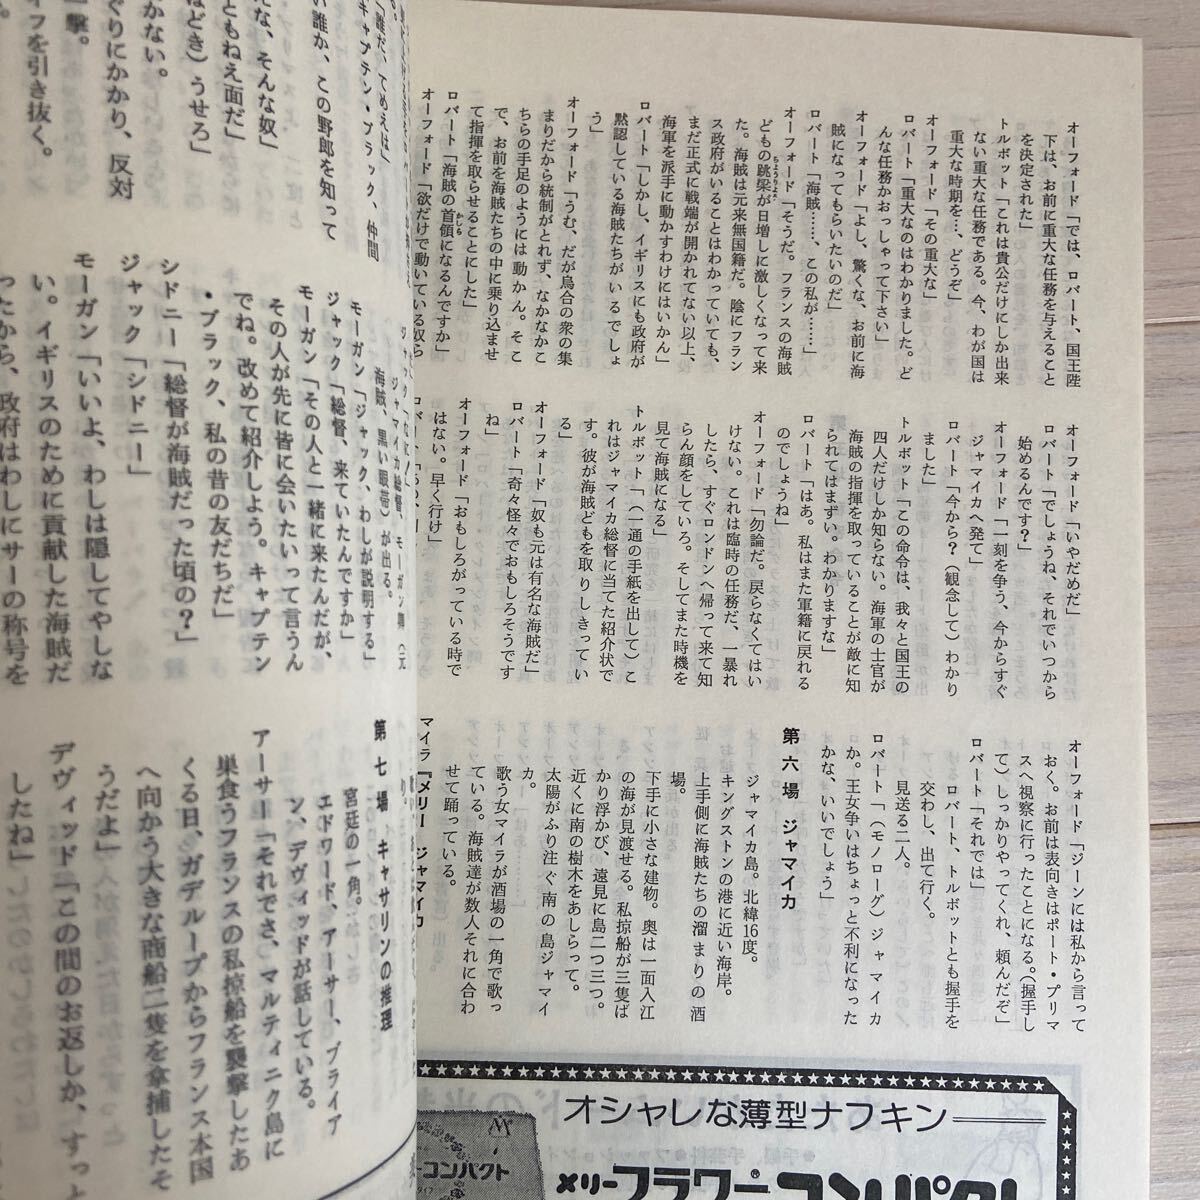 オーフォード「では、ロバート、国王陛
下は、お前に重大な任務を与えること
を決定された」
トルボット「これは貴公だけにしか出来
ない重大な任務である。今、わが国は
重大な時期を…、どうぞ」
オーフォード「その重大な」
ロバート「重大なのはわかりました。ど
んな任務かおっしゃって下さい」
オーフォード「よし、驚くな、お前に海
賊になってもらいたいのだ」
ロバート「海賊……、この私が……」
オーフォード「そうだ。フランスの海賊
どもの跳梁が日増しに激しくなって来
た。海賊は元来無国籍だ。陰にフラン
ス政府がいることはわかっていても、
まだ正式に戦端が開かれてない以上、
海軍を派手に動かすわけにはいかん」
ロバート「しかし、イギリスにも政府が
黙認している海賊たちがいるでしょ
う」
オーフォード「うむ、だが烏合の衆の集
まりだから統制がとれず、なかなかこ
ちらの手足のようには動かん。そこ
で、お前を海賊たちの中に乗り込ませ
て指揮を取らせることにした」
ロバート「海賊の首領になるんですか」
オーフォード「欲だけで動いている奴ら
オーフォード「いやだめだ」
ロバート「でしょうね、それでいつから
始めるんです?」
オーフォード「一刻を争う、今からすぐ
ジャマイカへ発て」
ロバート「今から?(観念して)わかり
ました」
トルボット「この命令は、我々と国王の
四人だけしか知らない。海軍の士官が
海賊の指揮を取っていることが敵に知
られてはまずい。わかりますな」
ロバート「はあ。私はまた軍籍に戻れる
のでしょうね」
オーフォード「勿論だ。戻らなくてはい
けない。これは臨時の任務だ、一暴れ
したら、すぐロンドンへ帰って来て知
らん顔をしていろ。そしてまた時機を
見て海賊になる」
トルボット「(一通の手紙を出して)こ
れはジャマイカ総督に当てた紹介状で
す。彼が海賊どもを取りしきってい
る」
オーフォード「奴も元は有名な海賊だ」
ロバート「奇々怪々でおもしろそうです
ね」
オーフォード「おもしろがっている時で
はない。早く行け」
オーフォード「ジーンには私から言って
おく。お前は表向きはポート・プリマ
スへ視察に行ったことになる。(握手し
て)しっかりやってくれ、頼んだぞ」
ロバート「それでは」
ロバート、トルボットとも握手を
交わし、出て行く。
見送る二人。
ロバート「(モノローグ)ジャマイカ
か。王女争いはちょっと不利になった
かな、いいでしょう」
第六場 ジャマイカ
ジャマイカ島。北緯16度。
キングストンの港に近い海岸。
上手側に海賊たちの溜まりの酒
場。
下手に小さな建物。奥は一面入江
の海が見渡せる。私掠船が三隻ば
かり浮かび、遠見に島二つ三つ。
近くに南の樹木をあしらって。
太陽がふり注ぐ南の島ジャマイ
カ。
歌う女マイラが酒場の一角で歌っ
ている。海賊達が数人それに合わ
せて踊っている。
マイラ『メリー ジャマイカ
オシャレな薄型ナフキン
メリーフラワー®コンパクト
ーコンパクト
「誰だ、てめえは」
キャプテン・ブラック、仲間
い誰か、この野郎を知って
んな、そんな奴」
ともねえ面だ」
ほどき)うせろ」
かない。
ぐりにかかり、反対
撃。
イフを引き抜く。
ジャマイカ総督、モーガン興(元
海賊、黒い眼帯)が出る。
モーガン「ジャック、わしが説明する」
ジャック「総督、来ていたんですか」
モーガン「その人と一緒に来たんだが、
その人が先に皆に会いたいって言うん
でね。改めて紹介しよう。キャプテン
・ブラック、私の昔の友だちだ」
シドニー「総督が海賊だった頃の?」
ジャック「シドニー」
モーガン「いいよ、わしは隠してやしな
い。イギリスのために貢献した海賊だ
ったから、政府はわしにサーの称号を
第七場 キャサリンの推理
宮廷の一角。
エドワード、アーサー、ブライア
ン、デヴィッドが話している。
アーサー「それでさ、マルティニク島に
巣食うフランスの私掠船を襲撃したあ
くる日、ガデループからフランス本国
へ向かう大きな商船二隻を拿捕したそ
うだよ」
デヴィッド「この間のお返しか、すっと
したね」